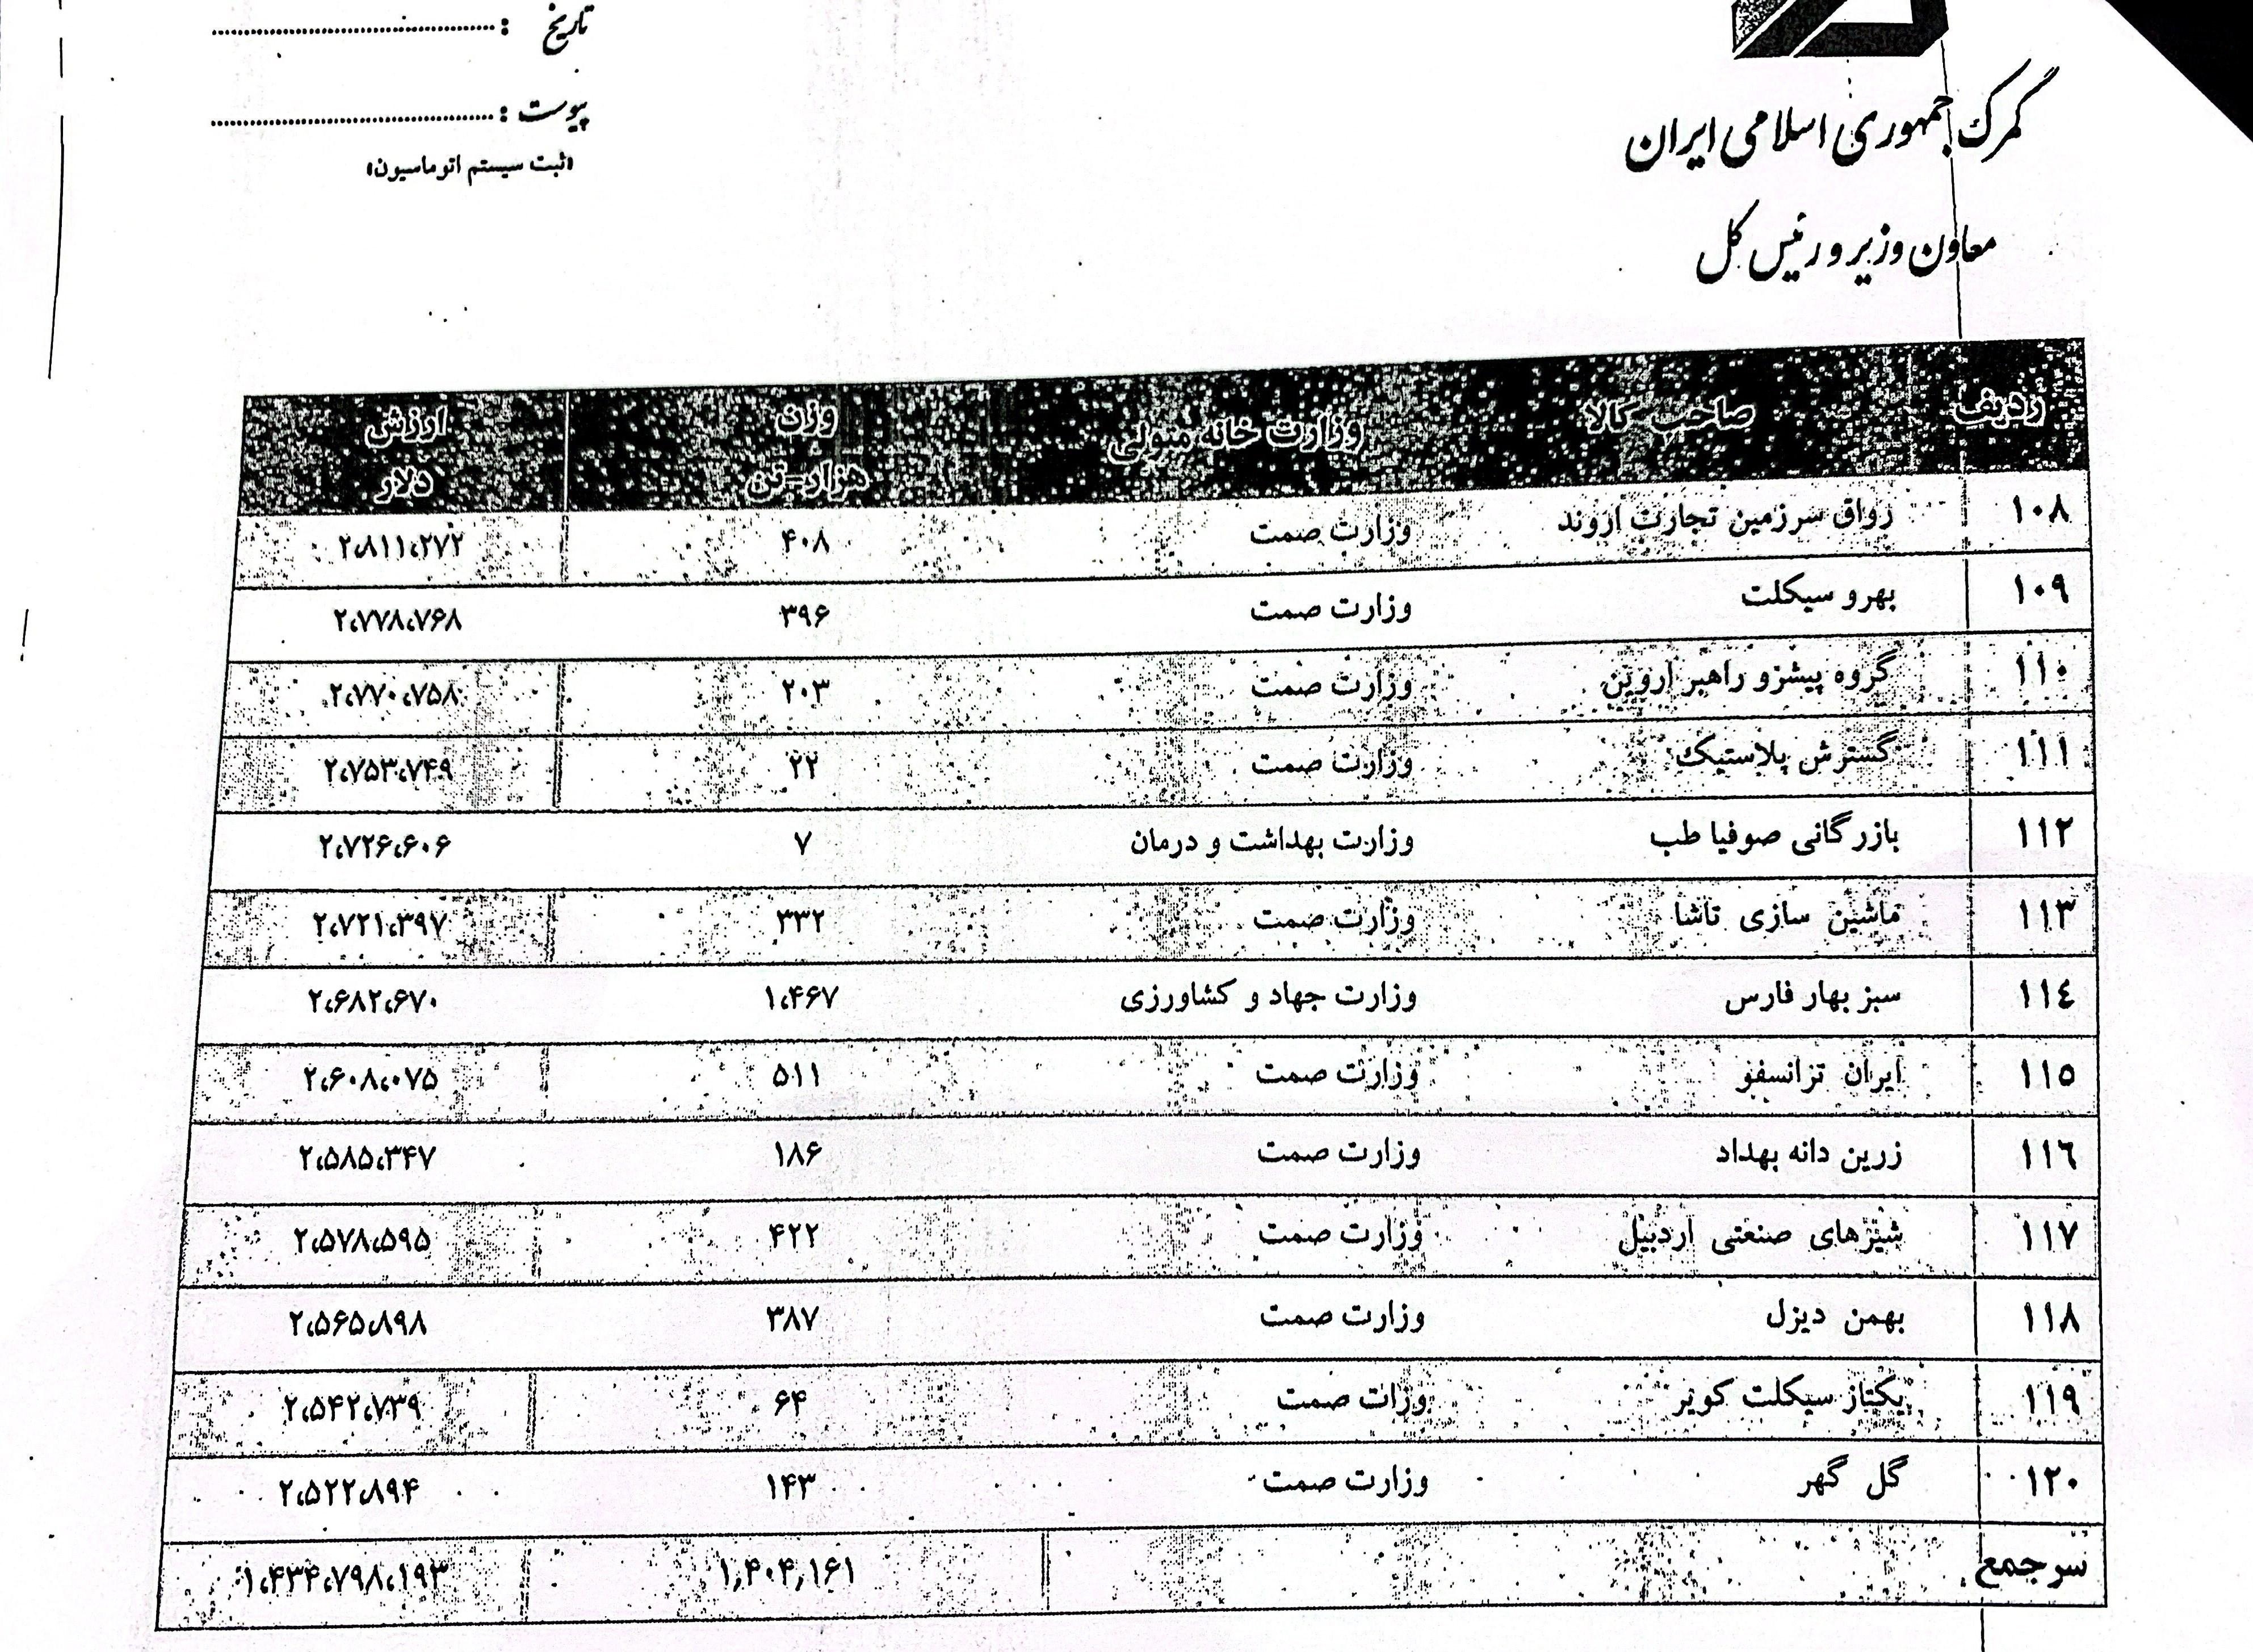 تاریخ :
پیوست :
«ثبت سیستم اتوماسیون»
گمرک جمهوری اسلامی ایران
معاون وزیر و رئیس کل
ردیف صاحب کالا وزارت خانه متولی وزن هزار-تن ارزش دلار
۱۰۸ رواق سرزمین تجارت اروند وزارت صمت ۴۰۸ ۲،۸۱۱،۲۷۲
۱۰۹ بهرو سیکلت وزارت صمت ۳۹۶ ۲،۷۷۸،۷۶۸
۱۱۰ گروه پیشرو راهبر اروین وزارت صمت ۲۰۳ ۲،۷۷۰،۷۵۸
۱۱۱ گسترش پلاستیک وزارت صمت ۲۲ ۲،۷۵۳،۷۴۹
۱۱۲ بازرگانی صوفیا طب وزارت بهداشت و درمان ۷ ۲،۷۲۶،۶۰۶
۱۱۳ ماشین سازی تاشا وزارت صمت ۳۳۲ ۲،۷۲۱،۳۹۷
۱۱٤ سبز بهار فارس وزارت جهاد و کشاورزی ۱،۴۶۷ ۲،۶۸۲،۶۷۰
۱۱۵ ایران ترانسفو وزارت صمت ۵۱۱ ۲،۶۰۸،۰۷۵
۱۱٦ زرین دانه بهداد وزارت صمت ۱۸۶ ۲،۵۸۵،۳۴۷
۱۱۷ شیرهای صنعتی اردبیل وزارت صمت ۴۲۲ ۲،۵۷۸،۵۹۵
۱۱۸ بهمن دیزل وزارت صمت ۳۸۷ ۲،۵۶۵،۸۹۸
۱۱۹ یکتاز سیکلت کویر وزات صمت ۶۴ ۲،۵۴۲،۷۳۹
۱۲۰ گل گهر وزارت صمت ۱۴۳ ۲،۵۲۲،۸۹۴
سرجمع ۱,۴۰۴,۱۶۱ ۱،۴۳۴،۷۹۸،۱۹۳